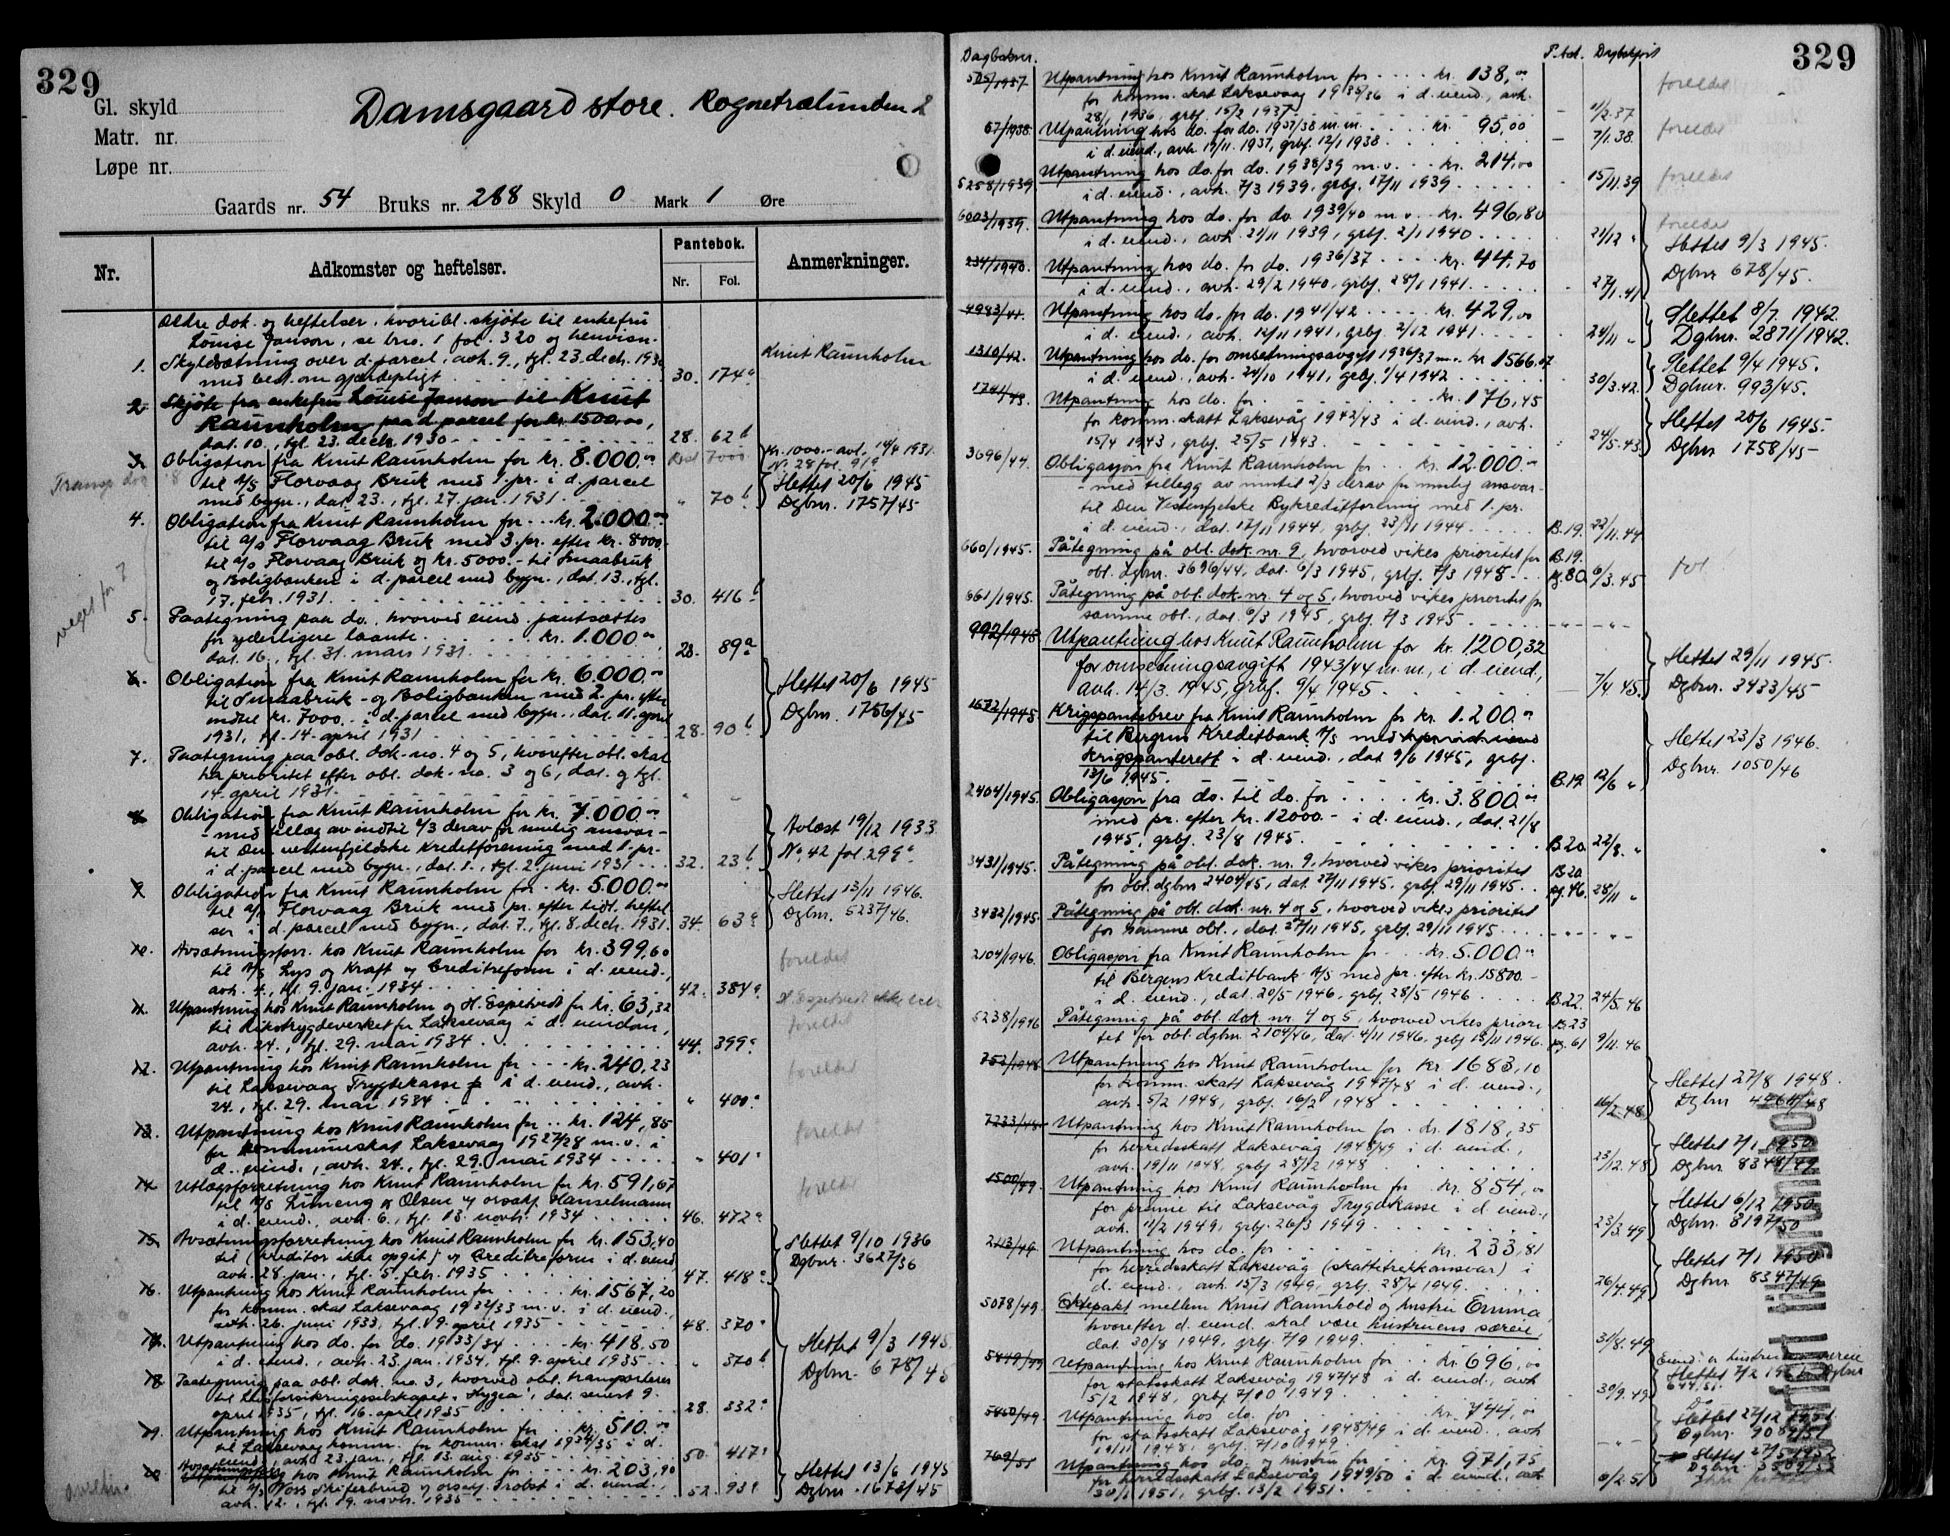 329
Gl. skyld
Matr. nr.
Løpe nr.
Damsgaard store. Rognetrælunden 2
Gaards nr. 54 Bruks nr. 288 Skyld 0 Mark 1 Øre
Nr.
Adkomster og heftelser.
Pantebok.
Nr. Fol.
Anmerkninger.
Ældre dok. og heftelser, hvoribl. skjøte til enkefru
Louise Janson, se brno. 1 fol. 320 og henvisn.
1. Skyldsætning over d. parcel, avh. 9., tgl. 23. dech. 1930 Knut Raunholm
med best. om gjærdepligt 30. 174a
2. Skjøte fra enkefru Louise Janson til Knut
Raunholm paa d. parcel for kr. 1500.00,
dat. 10., tgl. 23. dechr. 1930 28. 62b
3. Obligation fra Knut Raunholm for kr. 8.000.00 Rest 7000 Kr. 1000.- avl. 14/4 1931.
til A/S Florvaag Bruk med 1. pr. i d. parcel No 28 fol. 91a
med bygn., dat. 23., tgl. 27. jan. 1931 " 70b Slettet 20/6 1945
Dgbnr. 1757/45
4. Obligation fra Knut Raunholm for kr. 2.000.00
til A/S Florvaag Bruk med 3. pr. efter kr. 8000.
til A/S Florvaag Bruk og kr. 5000.- til Smaabruk
og Boligbanken i d. parcel med bygn., dat. 13., tgl.
17. feb. 1931. 30. 416b
5. Paategning paa do., hvorved eiend. pantsættes
for yderligere laante kr. 1.000.00
dat. 16., tgl. 31. mars 1931. 28. 89a
6. Obligation fra Knut Raunholm for kr. 6.000.00 Slettet 20/6 1945
til Smaabruk- og Boligbanken med 2. pr. efter Dgbnr. 1756/45
indtil kr. 7000.- i d. parcel med bygn., dat. 11. april
1931, tgl. 14. april 1931 28. 90b
7. Paategning paa obl. dok. no. 4 og 5, hvorefter obl. skal
ha prioritet efter obl. dok. no. 3 og 6, dat. og tgl.
14. april 1931.
8. Obligation fra Knut Raunholm for kr. 7.000.00
med tillæg av indtil 2/3 derav for mulig ansvar- Avlæst 19/12 1933
til Den vestenfjeldske Kreditforening med 1. pr. No. 42 fol. 299a
i d. parcel med bygn., dat. 1., tgl. 2. juni 1931 32. 23b
9. Obligation fra Knut Raunholm for kr. 5.000.00 Slettet 13/11 1946.
til A/S Florvaag Bruk med pr. efter tidl. heftel Dgbnr. 5237/46.
ser i d. parcel med bygn., dat. 7., tgl. 8. dech. 1931. 34. 63a
10. Avsætningsforr. hos Knut Raunholm for kr. 399,60 foreldet
til A/S Lys og Kraft og Creditreform i d. eiend.,
avh. 4., tgl. 9. jan. 1934 42. 384a
11. Utpantning hos Knut Raunholm og H. Espetvedt for kr. 63,32
til Rikstrygdeverket for Laksevaag i d. eiendom, foreldet
avh. 24., tgl. 29. mai 1934 44. 399a
12. Utpantning hos Knut Raunholm for kr. 240,23 foreldet
til Laksevaag Trygdekasse i d. eiend., avh.
24., tgl. 29. mai 1934 " 400a
13. Utpantning hos Knut Raunholm for kr. 124,85 foreldet
for kommuneskat Laksevaag 1927/28 m.v. i
d. eiend., avh. 24., tgl. 29. mai 1934 " 401a
14. Utlægsforretning hos Knut Raunholm for kr. 591,67 foreldet
til A/S Limeng & Olsen v/ orsakf. Hanselmann
i d. eiend., avh. 6., tgl. 13. novbr. 1934 46. 472a
15. Avsætningsforretning hos Knut Raunholm for kr. 153,40 Slettet 9/10 1936
til (kreditor ikke opgit) v/ Creditreform i d. eiend. Dgbnr. 3627/36
avh. 28. jan., tgl. 5. feb. 1935 47. 418a
16. Utpantning hos Knut Raunholm for kr. 1567,20
for komm. skat Laksevaag 1932/33 m.v. i d. eiend.,
avh. 26. juni 1933, tgl. 9. april 1935 48. 370a
17. Utpantning hos do. for do. 1933/34 kr. 418.50 Slettet 9/3 1945
i d. eiend., avh. 23. jan. 1934, tgl. 9. april 1935 " 370b Dgbnr. 678/45
18. Paategning paa obl. dok. no. 3, hvorved obl. transporteres
til Livsforsikringsselskapet "Hygea", dat. senest 9.
april 1935, tgl. 16. april 1935 28. 332a
19. Utpantning hos Knut Raunholm for kr. 510.00
til Laksevaag komm. for komm. skat 1934/35 i d.
eiend., avh. 23. jan., tgl. 13. aug. 1935 50. 417a
20. Avsætningsforr. hos Knut Raunholm for kr. 203,90 Slettet 13/6 1945
til A/S Voss Skiferbrud v/ orsakf. Trobst i d. eiend., Dgbnr. 1673/45
avh. 12., tgl. 19. novbr. 1935 52. 93a
Dagboknr. P.bok. Dagbokført 329
525/1937 Utpantning hos Knut Raunholm for kr. 138,00 foreldet
for komm. skat Laksevaag 1935/36 i d. eiend., avh.
28/1 1936, grbf. 15/2 1937 11/2.37
67/1938 Utpantning hos do. for do. 1937/38 m.m. kr. 95,00 foreldet
i d. eiend., avh. 17/11. 1937, grbf. 12/1 1938 7/1.38.
5258/1939 Utpantning hos do. for do. 1938/39 m.v. kr. 214,00
i d. eiend., avh. 7/3 1939, grbf. 17/11 1939 15/11.39 foreldet
6003/1939. Utpantning hos do. for do. 1939/40 m.v. kr. 496,80 foreldet
i d. eiend., avh. 21/11 1939, grbf. 2/1 1940 21/12 " Slettet 9/3 1945.
234/1940. Utpantning hos do. for do. 1936/37 kr. 44,70 Dgbnr 678/45.
i d. eiend., avh. 29/2 1940, grbf. 28/1 1941. 27/1.41
4983/41. Utpantning hos do. for do. 1941/42 kr. 429,00 Slettet 8/7. 1942.
i d. eiend., avh. 12/11 1941, grbf. 2/12 1941 24/11 " Dgbnr. 2871/1942.
1310/42. Utpantning hos do. for omsetningsavgift 1936/37 m.v. kr 1566.07 Slettet 9/4 1945.
i d. eiend., avh. 24/10 1941, grbf. 1/4 1942 30/3.42. Dgbnr. 993/45.
1241/43. Utpantning hos do. for kr. 176,45
for komm. skatt Laksevåg 1942/43 i d. eiend., avh. Slettet 20/6 1945.
15/4 1943, grbf. 25/5 1943. 24/5.43. Dgbnr 1758/45
3696/44. Obligasjon fra Knut Raunholm for kr. 12.000.-
- med tillegg av inntil 2/3 derav for mulig ansvar-
til Den Vestenfjelske Bykredittforening med 1. pr.
i d. eiend., dat. 17/11 1944, grbf. 23/11 1944 B.19. 22/11.44.
660/1945. Påtegning på obl. dok. nr. 9, hvorved vikes prioritet for B.19.
obl. dgbnr. 3696/44, dat. 6/3 1945, grbf. 7/3 1948 pg. 80. 6/3.45
661/1945. Påtegning på obl. dok. nr. 4 og 5, hvorved vikes prioritet for
samme obl., dat. 6/3 1945, grbf. 7/3 1945
992/1945 Utpantning hos Knut Raunholm for kr. 1200,32
for omsetningsavgift 1943/44 m.m., i d. eiend., Slettet 29/11 1945.
avh. 14/3. 1945, grbf. 9/4 1945. 7/4 45. Dgbnr. 3433/45
1672/1945 Krigspantebrev fra Knut Raunholm for kr. 1.200.00
til Bergens Kreditbank A/S med
krigspanterett i d. eiend., dat 9/6 1945, grbf. Slettet 23/3 1946.
13/6 1945. B.19. 12/6 " Dgbnr. 1050/46
2404/1945. Obligasjon fra do. til do. for kr. 3.800.00
med pr. efter kr. 12000.- i d. eiend., dat. 21/8
1945, grbf. 23/8 1945. B.20. 22/8. "
3431/1945. Påtegning på obl. dok. nr. 9, hvorved vikes prioritet B.20
for obl. dgbnr 2404/45, dat. 27/11 1945, grbf. 29/11 1945. pg. 46. 28/11 "
3432/1945. Påtegning på obl. dok. nr. 4 og 5, hvorved vikes prioritet
for samme obl., dat. 27/11 1945, grbf. 29/11 1945
2104/1946. Obligasjon fra Knut Raunholm for kr. 5.000.00
til Bergens Kreditbank A/S med pr. efter kr. 15800.-
i d. eiend., dat. 20/5 1946, grbf. 28/5 1946 B.22. 24/5.46
5238/1946 Påtegning på obl. dok. nr. 4 og 5, hvorved vikes priori- B.23
tet for obl. dgbnr. 2104/46, dat. 4/11 1946, grbf. 13/11 1946. pg. 61 9/11.46
752/1948 Utpantning hos Knut Raunholm for kr 1683,10
for komm. skatt Laksevåg 1947/48 i d. eiend., Slettet 27/8 1948.
avh. 5/2 1948, grbf. 16/2 1948 16/2.48 Dgbnr
7233/48. Utpantning hos Knut Raunholm for kr. 1818,35
for herredsskatt Laksevåg 1948/49 i d. eiend., Slettet 7/1 1950
avh. 19/11 1948, grbf. 28/12 1948 23/12.48 Dgbnr 8348/49
1500/49. Utpantning hos Knut Raunholm for kr. 854,00
for premie til Laksevåg Trygdekasse i d. eiend., Slettet 6/12 1950
avh. 11/2 1949, grbf. 26/3 1949. 23/3.49 Dgbnr. 8197/50
2113/49. Utpantning hos do. for kr. 233,81
for herredsskatt Laksevåg (skattetrekkansvar) i Slettet 7/1 1950
d. eiend., avh. 15/3 1949, grbf. 28/4 1949. 26/4.49 Dgbnr 8347/49
5078/49. Ektepakt mellem Knut Raunhold og hustru Emma,
hvorefter d. eiend. skal være hustruens særeie,
dat. 30/8 1949, grbf. 7/9 1949. 31/8.49
5849/49 Utpantning hos Knut Raunholm for kr. 696,00
for statsskatt Laksevåg 1947/48 i d. eiend., avh
5/2 1948, grbf. 7/10 1949 30/9.49
5850/49. Utpantning hos do. for kr. 744,00
for statsskatt Laksevåg 1948/49 i d. eiend., avh
19/11 1948, grbf. 7/10 1949. Slettet 27/12 1951.
769/51 Utpantning hos do. og hustru for kr. 971,75
for herredsskatt Laksevåg 1949/50 i d. eiend., avh
30/1 1951, grbf. 13/2 1951. 6/2.51
Overført til grunnbok